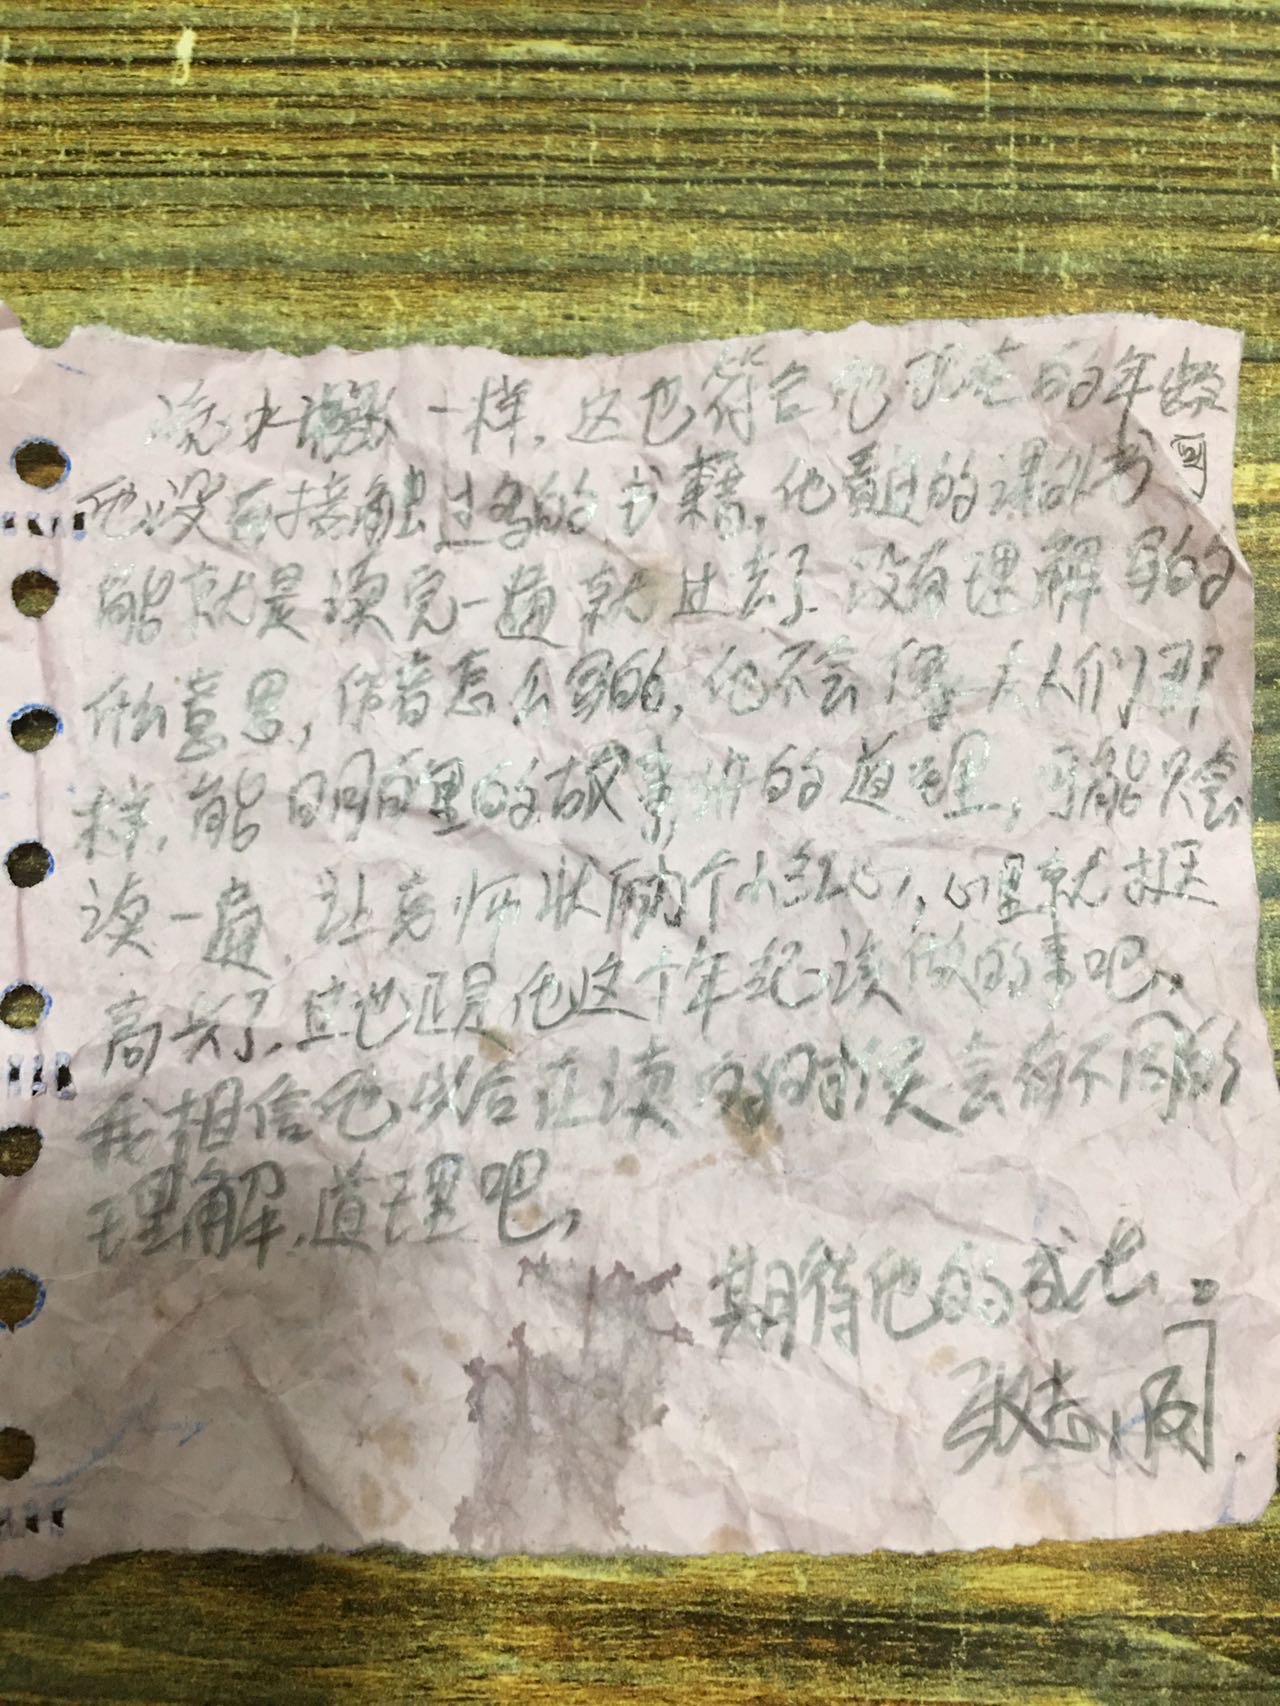 流水账一样，这也符合他现在的年龄
他没有接触过多的书籍，他看过的课外书可
能就是读完一遍就过去了没有理解写的
什么意思，作者怎么写的，他不会像大人们那
样，能明白里的故事讲的道理，可能只会
读一遍，让老师奖励个小红心，心里就挺
高兴了，这也正是他这个年纪该做的事吧，
我相信他以后在读的时候会有不同的
理解，道理吧，
期待他的成长：
张志